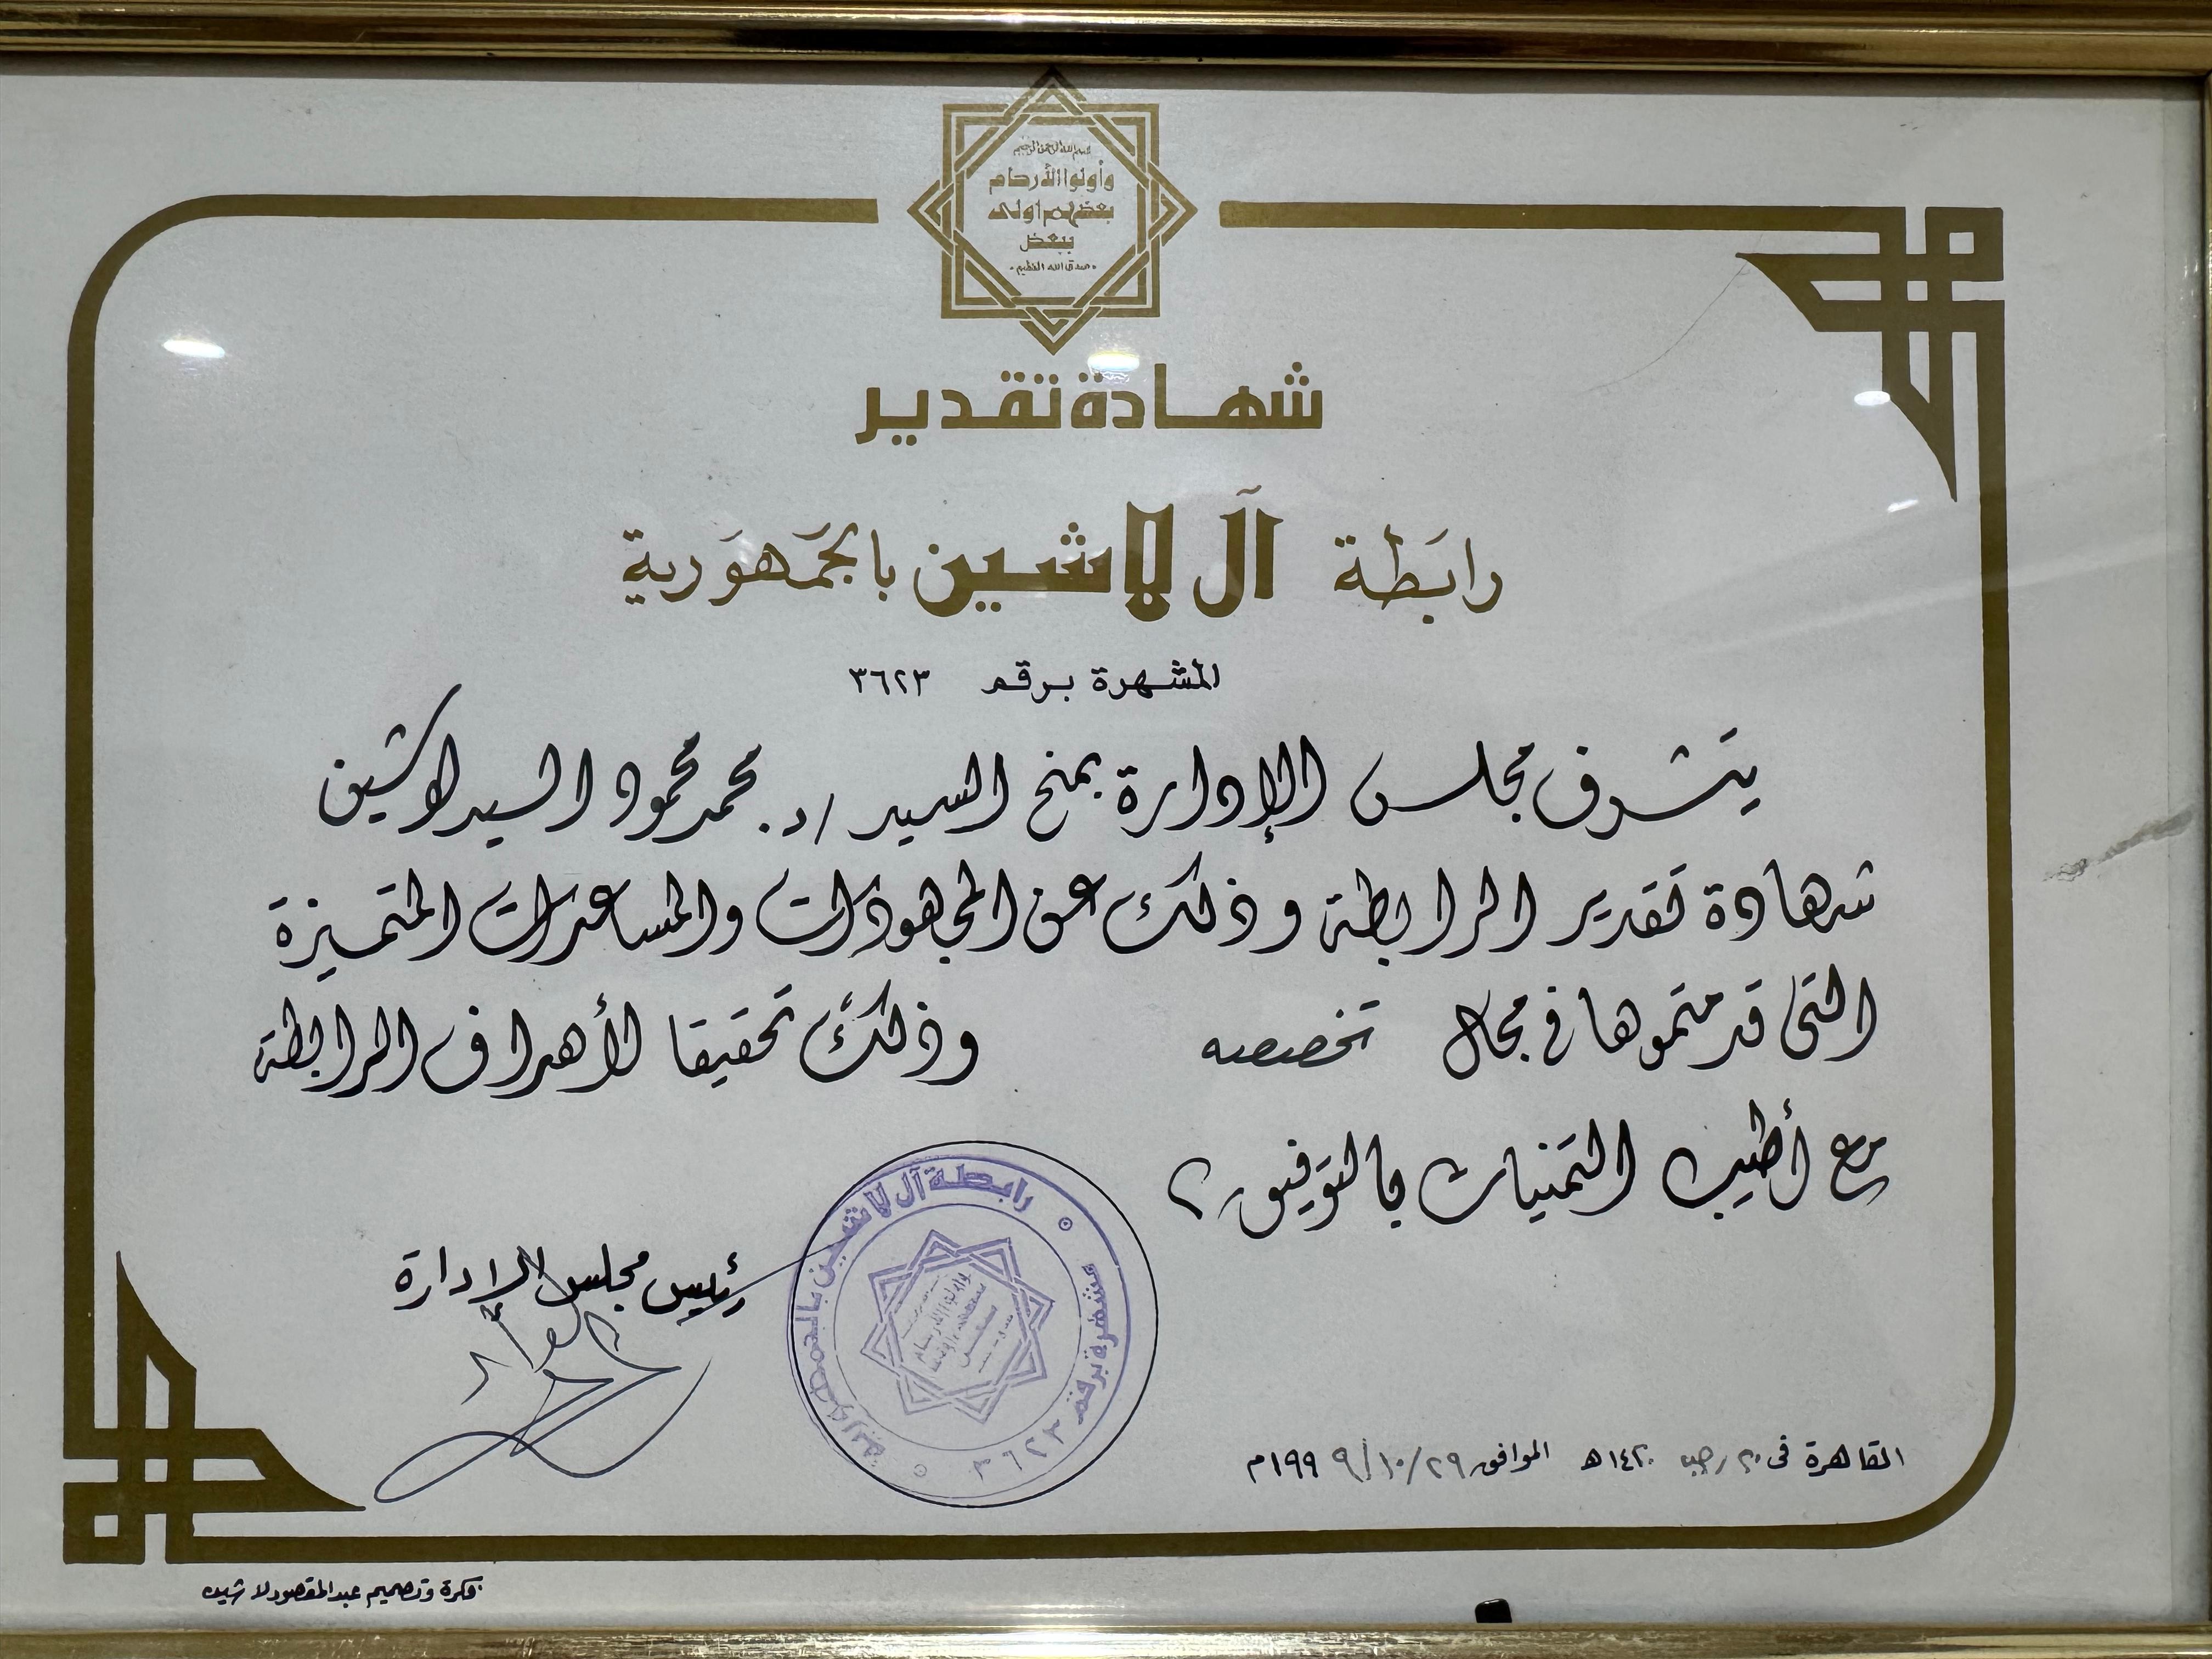 بسم الله الرحمن الرحيم
وأولوا الأرحام
بعضهم اولى
ببعض
صدق الله العظيم
شهادة تقدير
رابطة آل لاشين بالجمهورية
المشهرة برقم ٣٦٢٣
يتشرف مجلس الإدارة بمنح السيد / د. محمد محمود السيد لاشين
شهادة تقدير الرابطة وذلك عن المجهودات والمساعدات المتميزة
التى قدمتموها فى مجال تخصصه وذلك تحقيقا لأهداف الرابطة
مع أطيب التمنيات بالتوفيق
رئيس مجلس الإدارة
رابطة آل لاشين بالجمهورية
مشهرة برقم ٣٦٢٣
القاهرة فى ٢٠ رجب ١٤٢٠هـ الموافق ٢٩/١٠/١٩٩٩م
فكرة وتصميم عبدالمقصود لاشين